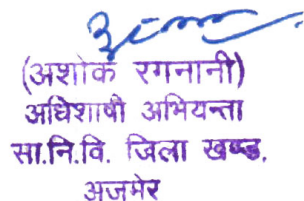 (अशोक रगनानी)
अधिशाषी अभियन्ता
सा.नि.वि. जिला खण्ड,
अजमेर